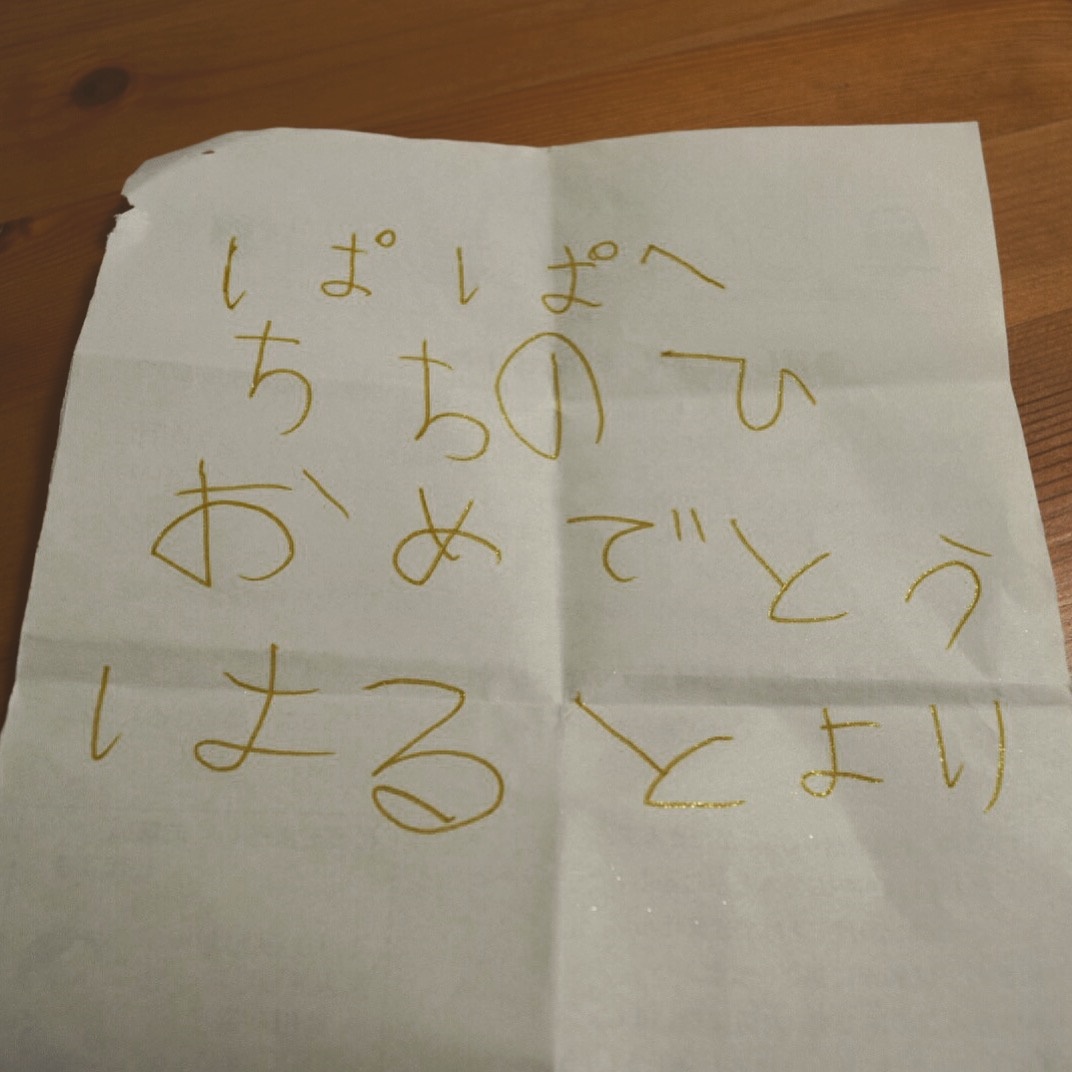 ぱぱへ
ちちのひ
おめでとう
はるとより